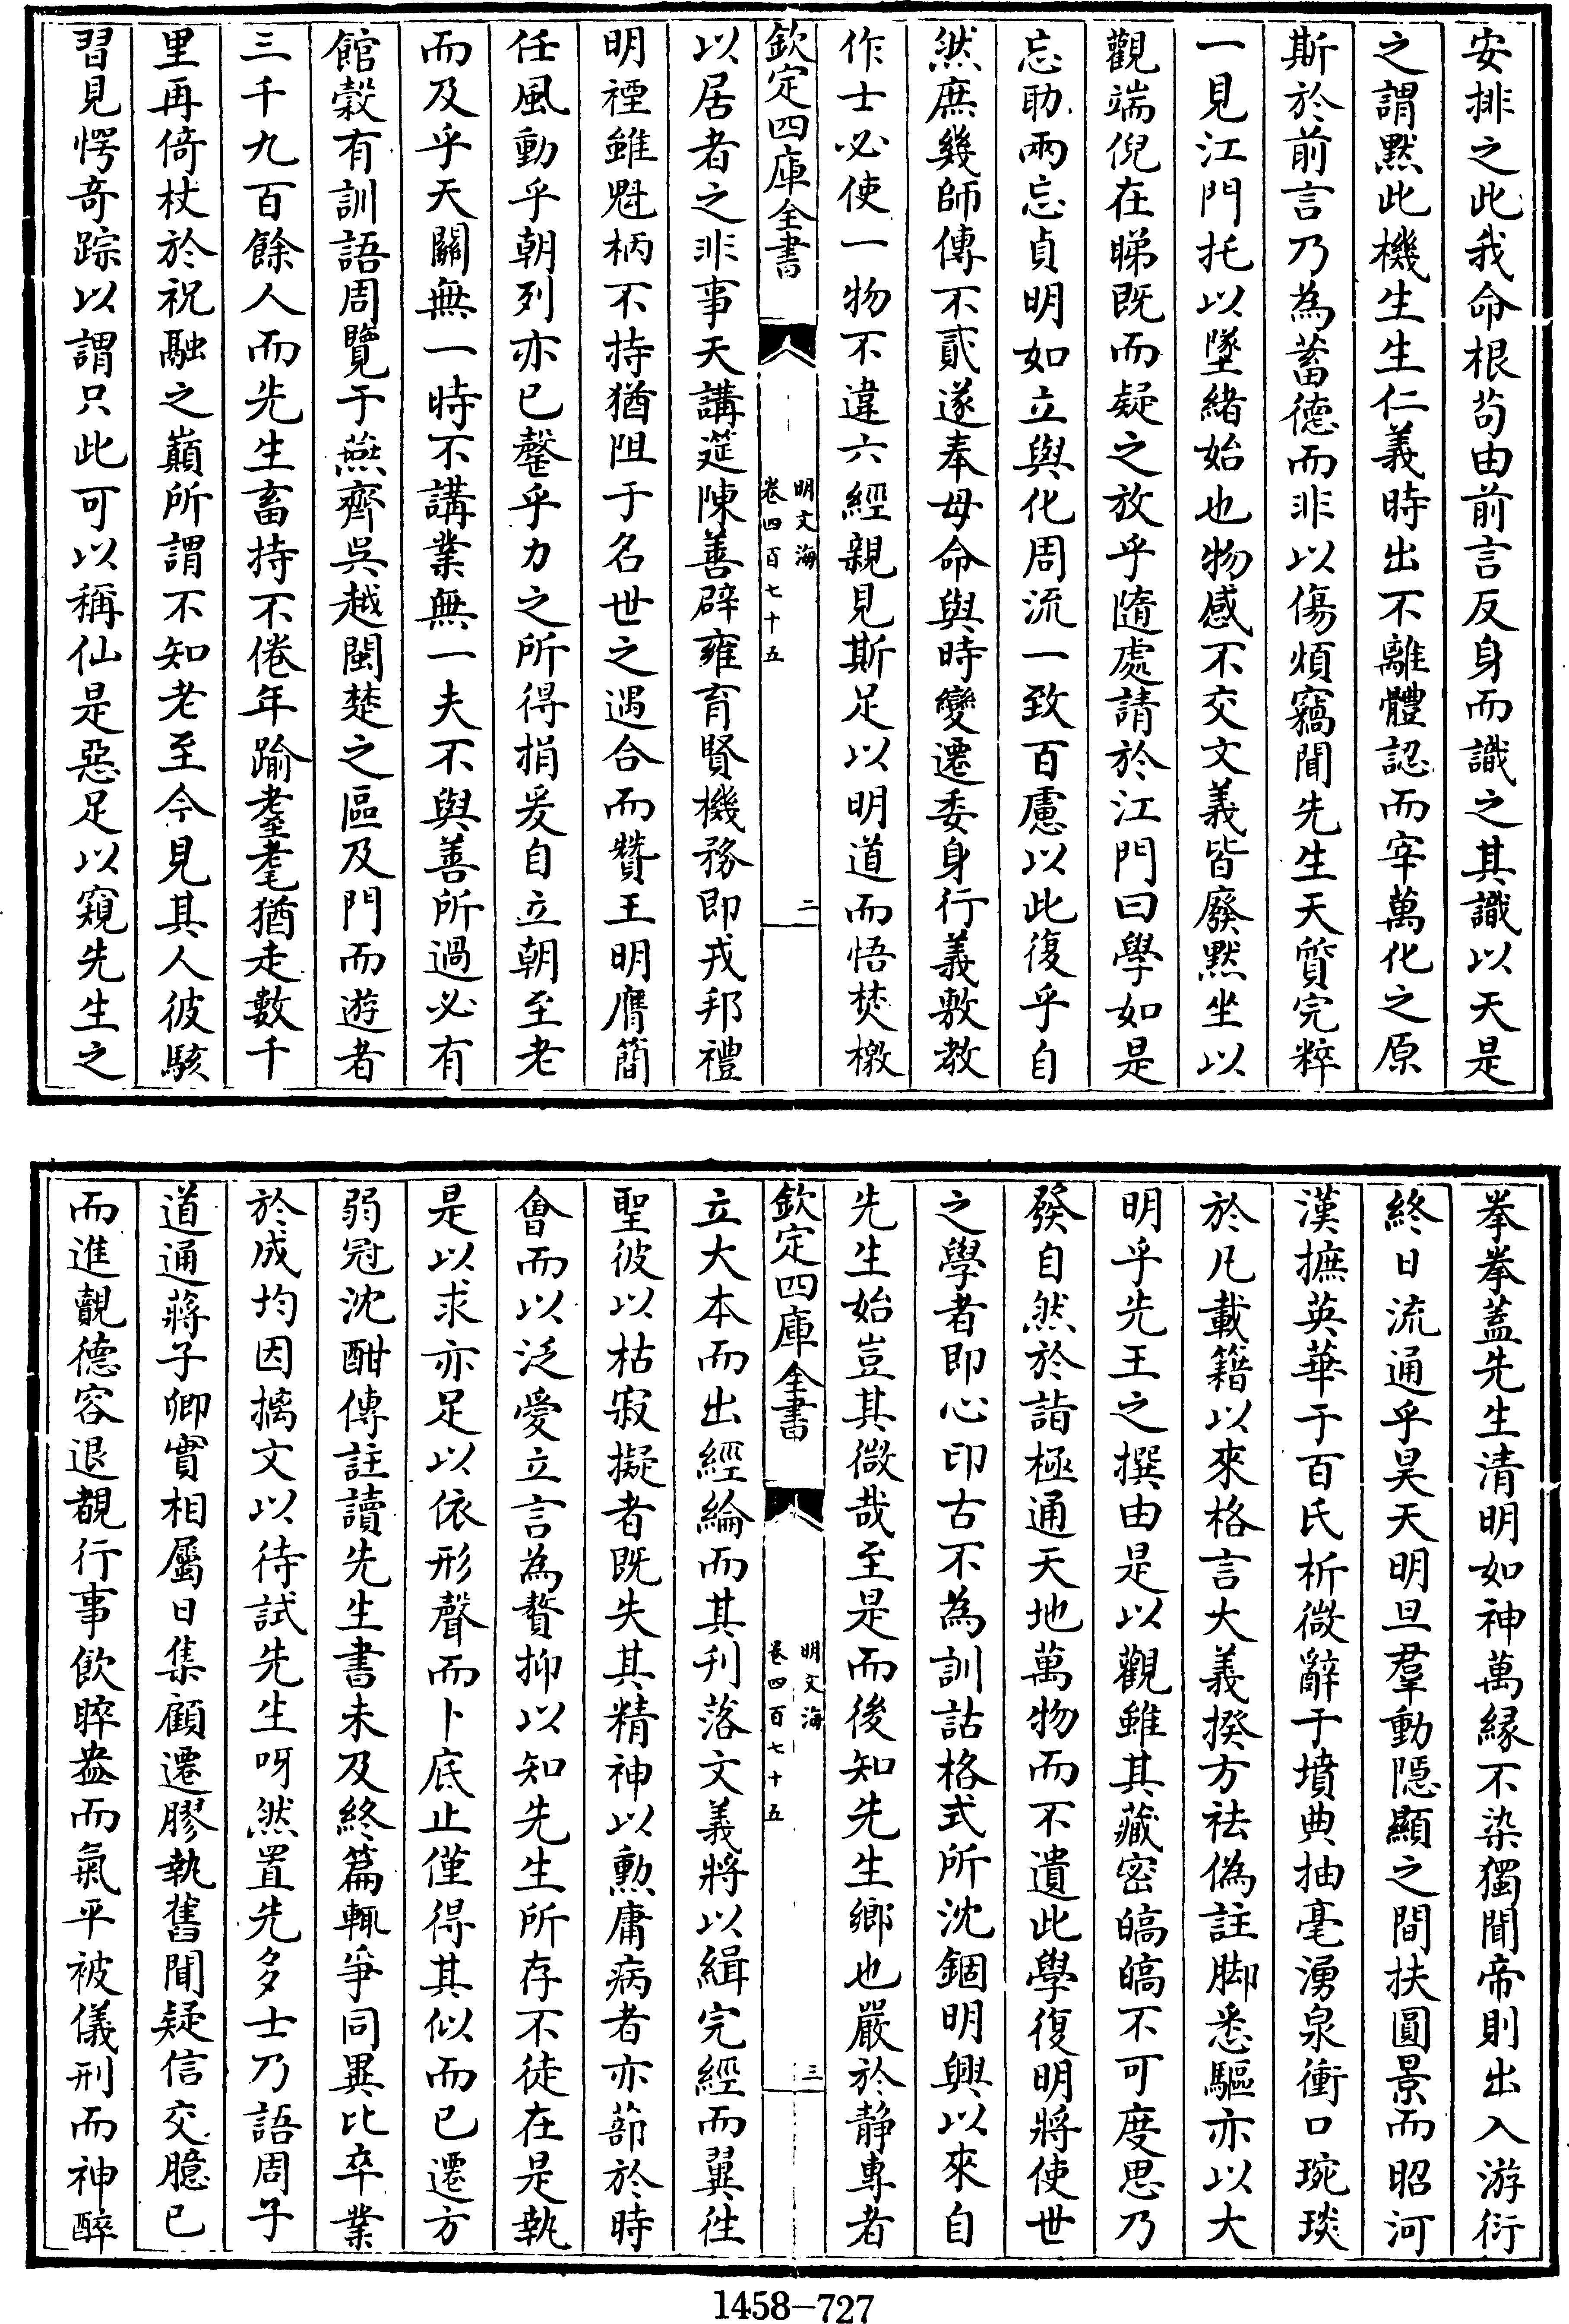 安排之此我命根苟由前言反身而識之其識以天是
之謂黙此機生生仁義時出不離體認而宰萬化之原
斯於前言乃為蓄德而非以傷煩竊聞先生天質完粹
一見江門托以墜緒始也物感不交文義皆廢黙坐以
觀端倪在睇既而疑之放乎隨處請於江門曰學如是
忘助兩忘貞明如立與化周流一致百慮以此復乎自
然庶幾師傳不貳遂奉母命與時變遷委身行義敷教
作士必使一物不違六經親見斯足以明道而悟焚檄
欽定四庫全書
明文海
卷四百七十五
二
以居者之非事天講筵陳善辟雍育賢機務即戎邦禮
明禋雖魁柄不持猶阻于名世之遇合而贊王明膺簡
任風動乎朝列亦已罄乎力之所得捐爰自立朝至老
而及乎天關無一時不講業無一夫不與善所過必有
館穀有訓語周覽于燕齊吳越閩楚之區及門而遊者
三千九百餘人而先生畜持不倦年踰耋耄猶走數千
里再倚杖於祝融之巔所謂不知老至今見其人彼駭
習見愕竒踪以謂只此可以稱仙是惡足以窺先生之
拳拳葢先生清明如神萬縁不染獨聞帝則出入游衍
終日流通乎昊天明旦羣動隠顯之間扶圓景而昭河
漢摭英華于百氏析微辭于墳典抽毫湧泉衝口琬琰
於凡載籍以來格言大義揆方祛偽註脚悉驅亦以大
明乎先王之撰由是以觀雖其藏密皜皜不可度思乃
發自然於詣極通天地萬物而不遺此學復明將使世
之學者即心印古不為訓詁格式所沈錮明興以來自
先生始豈其微哉至是而後知先生鄉也嚴於静專者
欽定四庫全書
明文海
卷四百七十五
三
立大本而出經綸而其刋落文義將以緝完經而翼徃
聖彼以枯寂擬者既失其精神以勲庸病者亦蔀於時
㑹而以泛愛立言為贅抑以知先生所存不徒在是執
是以求亦足以依形聲而卜底止僅得其似而已遷方
弱冠沈酣傳註讀先生書未及終篇輒爭同異比卒業
於成均因摛文以待試先生呀然置先多士乃語周子
道通蔣子卿實相屬日集顧遷膠執舊聞疑信交臆已
而進覿德容退覩行事飲晬盎而氣平被儀刑而神醉
1458—727